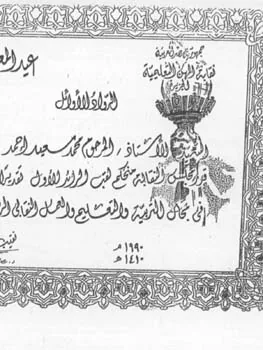 جمهورية مصر العربية
نقابة المهن التعليمية
عيد المع
الرواد الأوائل
الأستاذ / المرحوم محمد سعيد احمد
قرر مجلس النقابة منحكم لقب الرائد الأول تقديرا
في مجال التربية والتعليم والعمل النقابي
١٩٩٠ م
١٤١٠ هـ